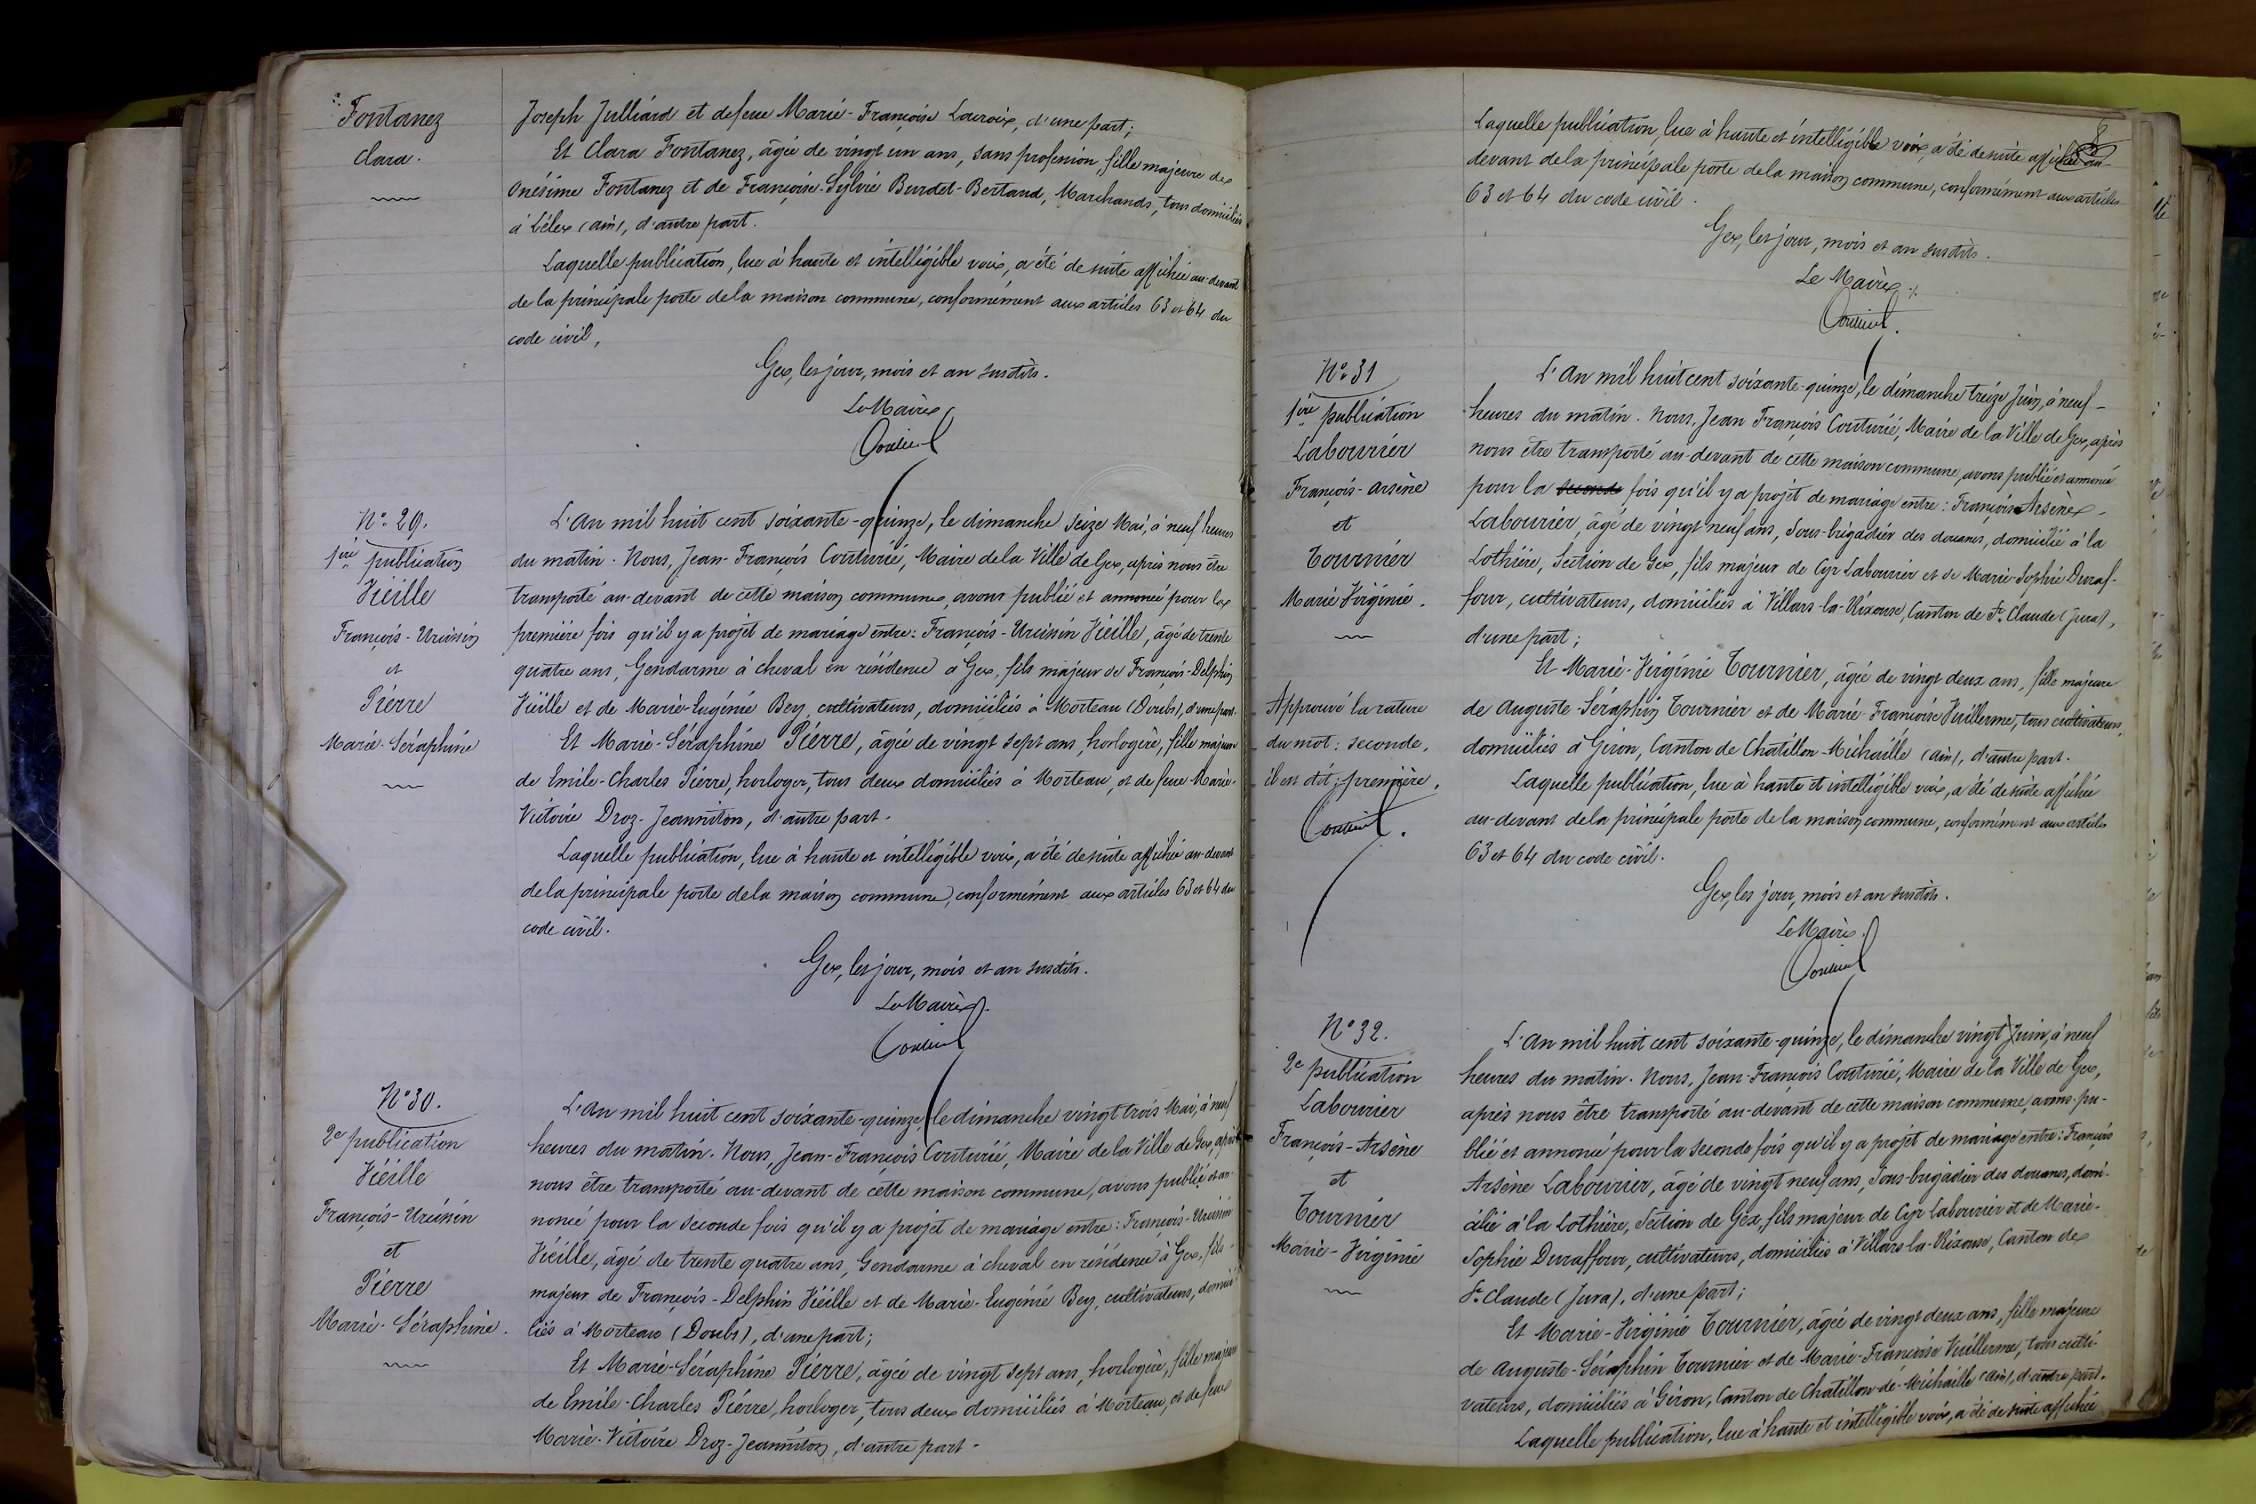 Fontanez
Clara.
Joseph Julliard et de feue Marie-Françoise Lacroix, d'une part;
Et Clara Fontanez, âgée de vingt un ans, sans profession, fille majeure de
Onésime Fontanez et de Françoise-Sylvie Burdet-Bertand, Marchands, tous domiciliés
à Lélex (ain), d'autre part.
Laquelle publication, lue à haute et intelligible voix, a été de suite affichée au-devant
de la principale porte de la maison commune, conformément aux articles 63 et 64 du
code civil,
Gex, les jour, mois et an susdits.
Le Maire
Couturié
N° 29.
1ère publication
Vieille
François-Urcinin
et
Pierre
Marie-Séraphine
L'An mil huit cent soixante-quinze, le dimanche seize Mai, à neuf heures
du matin. Nous, Jean-François Couturié, Maire de la Ville de Gex, après nous être
transporté au-devant de cette maison commune, avons publié et annoncé pour la
première fois qu'il y a projet de mariage entre: François-Urcinin Vieille, âgé de trente
quatre ans, Gendarme à cheval en résidence à Gex, fils majeur de François-Delphin
Vieille et de Marie-Eugénie Bey, cultivateurs, domiciliés à Morteau (Doubs), d'une part.
Et Marie-Séraphine Pierre, âgée de vingt sept ans, horlogère, fille majeure
de Emile-Charles Pierre, horloger, tous deux domiciliés à Morteau, et de feue Marie-
Victoire Droz-Jeanniton, d'autre part.
Laquelle publication, lue à haute et intelligible voix, a été de suite affichée au-devant
de la principale porte de la maison commune, conformément aux articles 63 et 64 du
code civil.
Gex, les jour, mois et an susdits.
Le Maire.
Couturié
N° 30.
2e publication
Vieille
François-Urcinin
et
Pierre
Marie-Séraphine.
L'An mil huit cent soixante-quinze, le dimanche vingt trois Mai, à neuf
heures du matin. Nous, Jean-François Couturié, Maire de la Ville de Gex, après
nous être transporté au-devant de cette maison commune, avons publié et an-
noncé pour la seconde fois qu'il y a projet de mariage entre: François-Urcinin
Vieille, âgé de trente quatre ans, Gendarme à cheval en résidence à Gex, fils
majeur de François-Delphin Vieille et de Marie-Eugénie Bey, cultivateurs, domici-
liés à Morteau (Doubs), d'une part;
Et Marie-Séraphine Pierre, âgée de vingt sept ans, horlogère, fille majeure
de Emile-Charles Pierre, horloger, tous deux domiciliés à Morteau, et de feue
Marie-Victoire Droz-Jeanniton, d'autre part.
Laquelle publication, lue à haute et intelligible voix, a été de suite affichée au-
devant de la principale porte de la maison commune, conformément aux articles
63 et 64 du code civil.
Gex, les jour, mois et an susdits.
Le Maire
Couturié.
N° 31
1ère publication
Labourier
François-Arsène
et
Tournier
Marie Virginie.
Approuvé la rature
du mot: seconde,
il est dit: première.
Couturié.
L'An mil huit cent soixante-quinze, le dimanche treize Juin, à neuf
heures du matin. Nous, Jean François Couturié, Maire de la Ville de Gex, après
nous être transporté au-devant de cette maison commune, avons publié et annoncé
pour la seconde fois qu'il y a projet de mariage entre: François Arsène
Labourier, âgé de vingt neuf ans, Sous-brigadier des douanes, domicilié à la
Lothière, Section de Gex, fils majeur de Cyr Labourier et de Marie-Sophie Duraf-
four, cultivateurs, domiciliés à Villars-la-Rixouse, Canton de St Claude (Jura),
d'une part;
Et Marie-Virginie Tournier, âgée de vingt deux ans, fille majeure
de Auguste-Séraphin Tournier et de Marie-Françoise Vuillerme, tous cultivateurs,
domiciliés à Giron, Canton de Chatillon-Michaille (ain), d'autre part.
Laquelle publication, lue à haute et intelligible voix, a été de suite affichée
au-devant de la principale porte de la maison commune, conformément aux articles
63 et 64 du code civil.
Gex, les jour, mois et an susdits.
Le Maire.
Couturié
N° 32.
2e publication
Labourier
François-Arsène
et
Tournier
Marie-Virginie
L'An mil huit cent soixante-quinze, le dimanche vingt Juin, à neuf
heures du matin. Nous, Jean-François Couturié, Maire de la Ville de Gex,
après nous être transporté au-devant de cette maison commune, avons pu-
blié et annoncé pour la seconde fois qu'il y a projet de mariage entre: François
Arsène Labourier, âgé de vingt neuf ans, Sous-brigadier des douanes, domi-
cilié à la Lothière, Section de Gex, fils majeur de Cyr Labourier et de Marie-
Sophie Duraffour, cultivateurs, domiciliés à Villars-la-Rixouse, Canton de
St Claude (Jura), d'une part;
Et Marie-Virginie Tournier, âgée de vingt deux ans, fille majeure
de Auguste-Séraphin Tournier et de Marie-Françoise Vuillerme, tous culti-
vateurs, domiciliés à Giron, Canton de Chatillon-de-Michaille (ain), d'autre part.
Laquelle publication, lue à haute et intelligible voix, a été de suite affichée